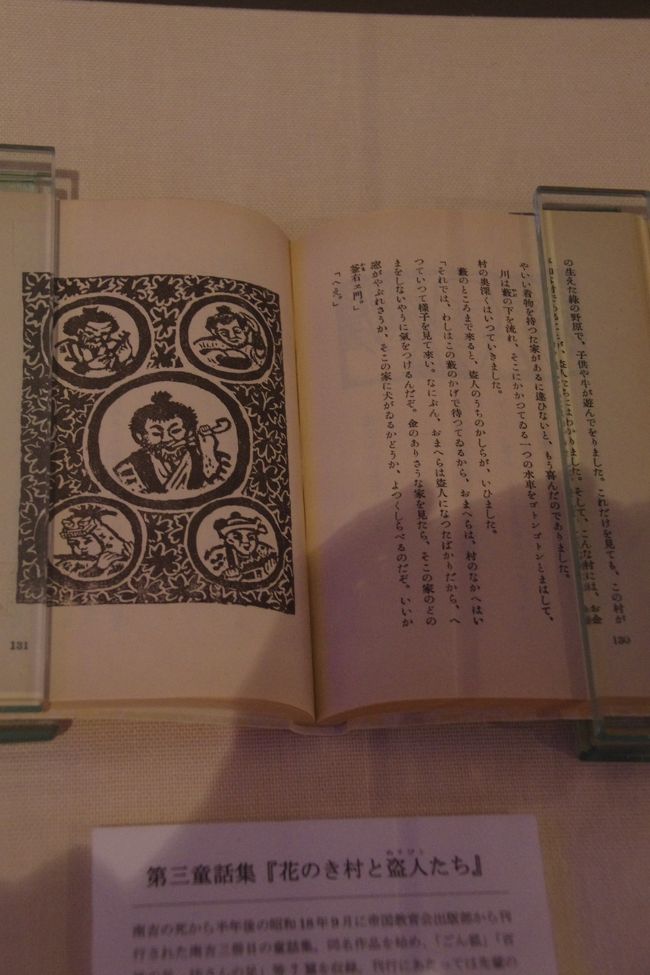 の生えた緑の野原で、子供や牛が遊んでをりました。これだけを見ても、この村が
であることが、盗人たちにはわかりました。そして、こんな村には、お金
やいい着物を持つた家があるに違ひないと、もう喜んだのでありました。
川は藪の下を流れ、そこにかかつてゐる一つの水車をゴトンゴトンとまはして、
村の奥深くはいつていきました。
藪のところまで來ると、盗人のうちのかしらが、いひました。
「それでは、わしはこの藪のかげで待つてゐるから、おまへらは、村のなかへはい
つていつて様子を見て來い。なにぶん、おまへらは盗人になつたばかりだから、へ
まをしないやうに氣をつけるんだぞ。金のありさうな家を見たら、そこの家のどの
窓がやぶれさうか、そこの家に犬がゐるかどうか、よつくしらべるのだぞ。いいか
釜右ヱ門。」
「へえ。」
130
131
第三童話集『花のき村と盗人たち』
南吉の死から半年後の昭和18年9月に帝国教育会出版部から刊
行された南吉三冊目の童話集。同名作品を始め、「ごん狐」「百
等7篇を収録。刊行にあたっては先輩の